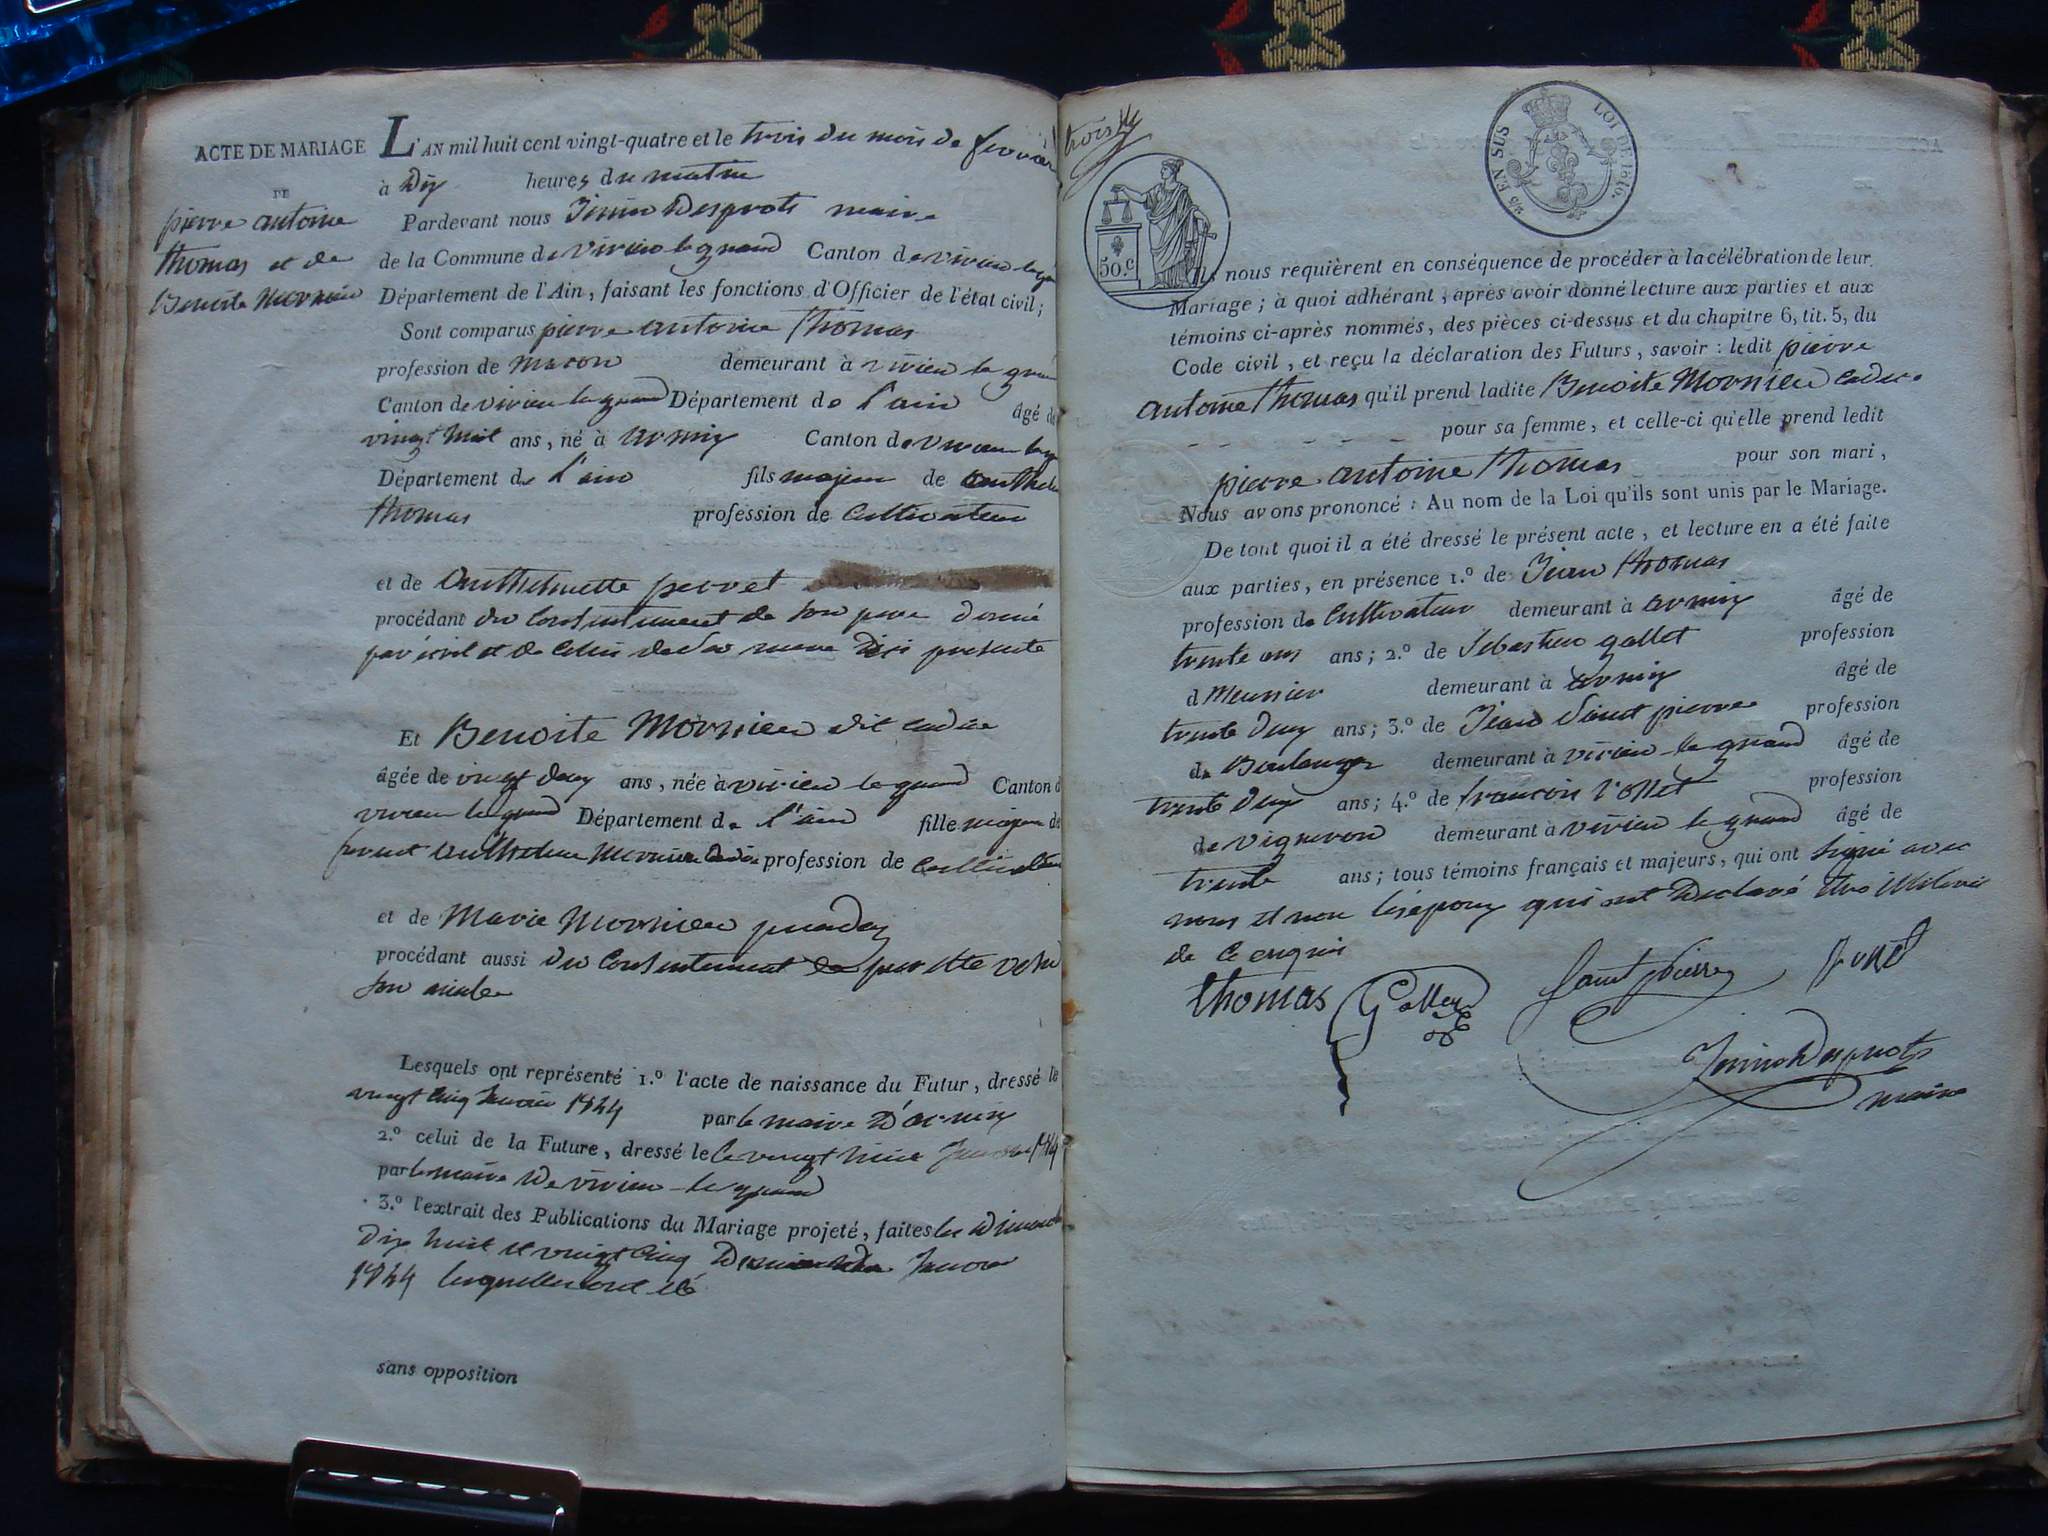 ACTE DE MARIAGE
DE
pierre antoine
thomas et de
Benoite Mornieu
L'AN mil huit cent vingt-quatre et le trois du mois de fevrier
à Dix heures du matin
Pardevant nous Jenin Desprots maire
de la Commune de virieu le grand Canton de virieu le g
Département de l'Ain, faisant les fonctions d'Officier de l'état civil;
Sont comparus pierre antoine thomas
profession de macon demeurant à virieu le gran
Canton de virieu le grand Département de l'ain âgé de
vingt huit ans, né à armix Canton de virieu le g
Département de l'ain fils majeur de anthel
thomas profession de Cultivateur
et de Anthelmette perret
procédant du Consentement de son pere donné
par écrit et de Celui de sa mere ici presente
Et Benoite Mornieu dit cadue
âgée de vingt deux ans, née à virieu le grand Canton d
virieu le grand Département de l'ain fille majeure de
feu anthelme Mornieu profession de Cultivateur
et de Marie Mornieu
procédant aussi du Consentement
son
Lesquels ont représenté 1.º l'acte de naissance du Futur, dressé le
vingt Cinq Janvier 1824 par le maire D'armix
2.º celui de la Future, dressé le le vingt huit Janvier 1824
par le maire De virieu le grand
3.º l'extrait des Publications du Mariage projeté, faites les Dimanche
Dix huit et vingt Cinq Janvier
1824 lesquelles ont été
sans opposition
trois
50.c
EN SUS
LOI DE 1816.
Ils nous requièrent en conséquence de procéder à la célébration de leur
Mariage; à quoi adhérant, après avoir donné lecture aux parties et aux
témoins ci-après nommés, des pièces ci-dessus et du chapitre 6, tit. 5, du
Code civil, et reçu la déclaration des Futurs, savoir: ledit pierre
antoine thomas qu'il prend ladite Benoite Mornieu cadue
pour sa femme, et celle-ci qu'elle prend ledit
pierre antoine thomas pour son mari,
Nous avons prononcé: Au nom de la Loi qu'ils sont unis par le Mariage.
De tout quoi il a été dressé le présent acte, et lecture en a été faite
aux parties, en présence 1.º de Jean thomas
profession de Cultivateur demeurant à armix âgé de
trente ans ans; 2.º de Sebastien gallet profession
d Meunier demeurant à armix âgé de
trente deux ans; 3.º de Jean Saint pierre profession
de Boulanger demeurant à virieu le grand âgé de
trente deux ans; 4.º de francois profession
de vigneron demeurant à virieu le grand âgé de
trente ans; tous témoins français et majeurs, qui ont signé avec
nous et non les epoux qui ont Declaré etre illiteré
de Ce enquis
thomas Gallet Saint pierre
Jenin Desprots
maire